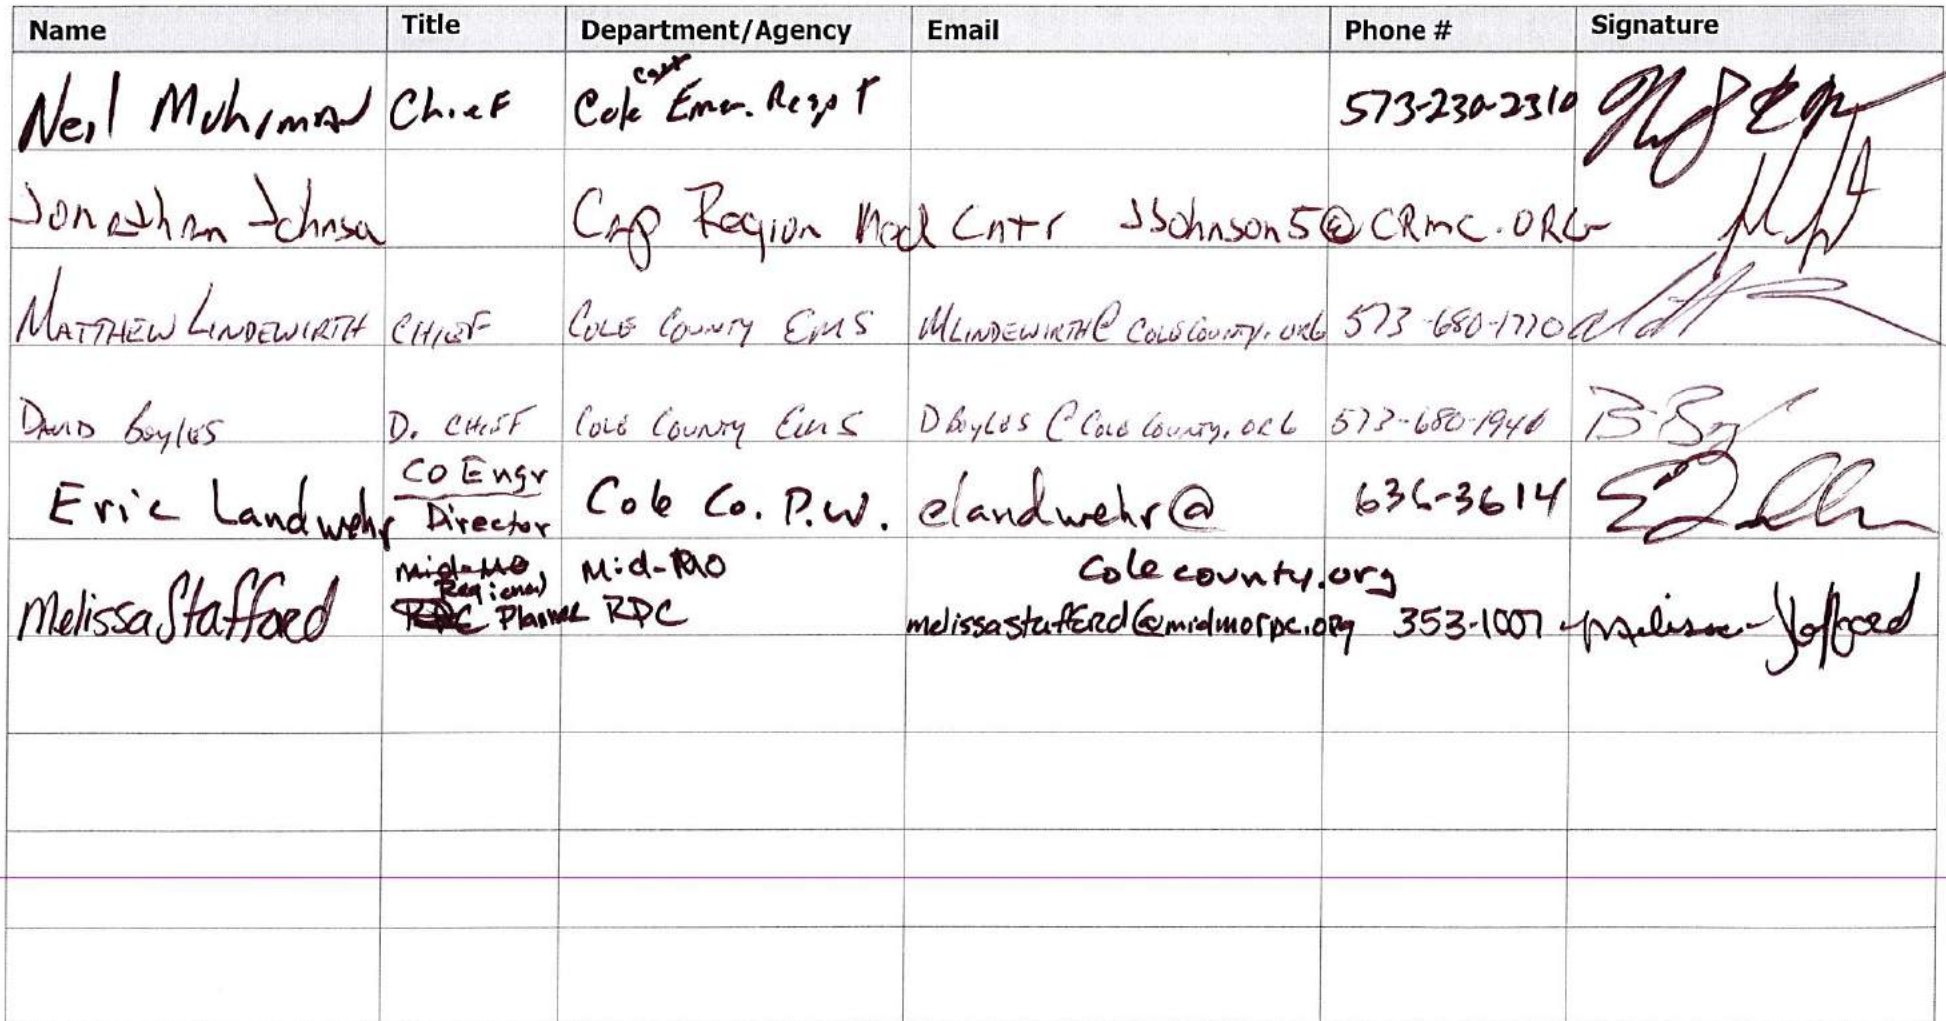 Name Title Department/Agency Email Phone # Signature
Neil Chief Cole Emer. 573-230-2310
Jonathan Johnson Cap Region Med Cntr JJohnson5@CRMC.ORG
MATTHEW LINDEWIRTH CHIEF COLE COUNTY EMS MLINDEWIRTH@COLECOUNTY.ORG 573-680-1770
DAVID BOYLES D. CHIEF COLE COUNTY EMS DBOYLES@COLECOUNTY.ORG
Eric Landwehr CO Engr Director Cole Co. P.W. elandwehr@ 636-3614
colecounty.org
Melissa Stafford Regional Planner Mid-MO RPC melissastafford@midmorpc.org 353-1007 Melissa Stafford